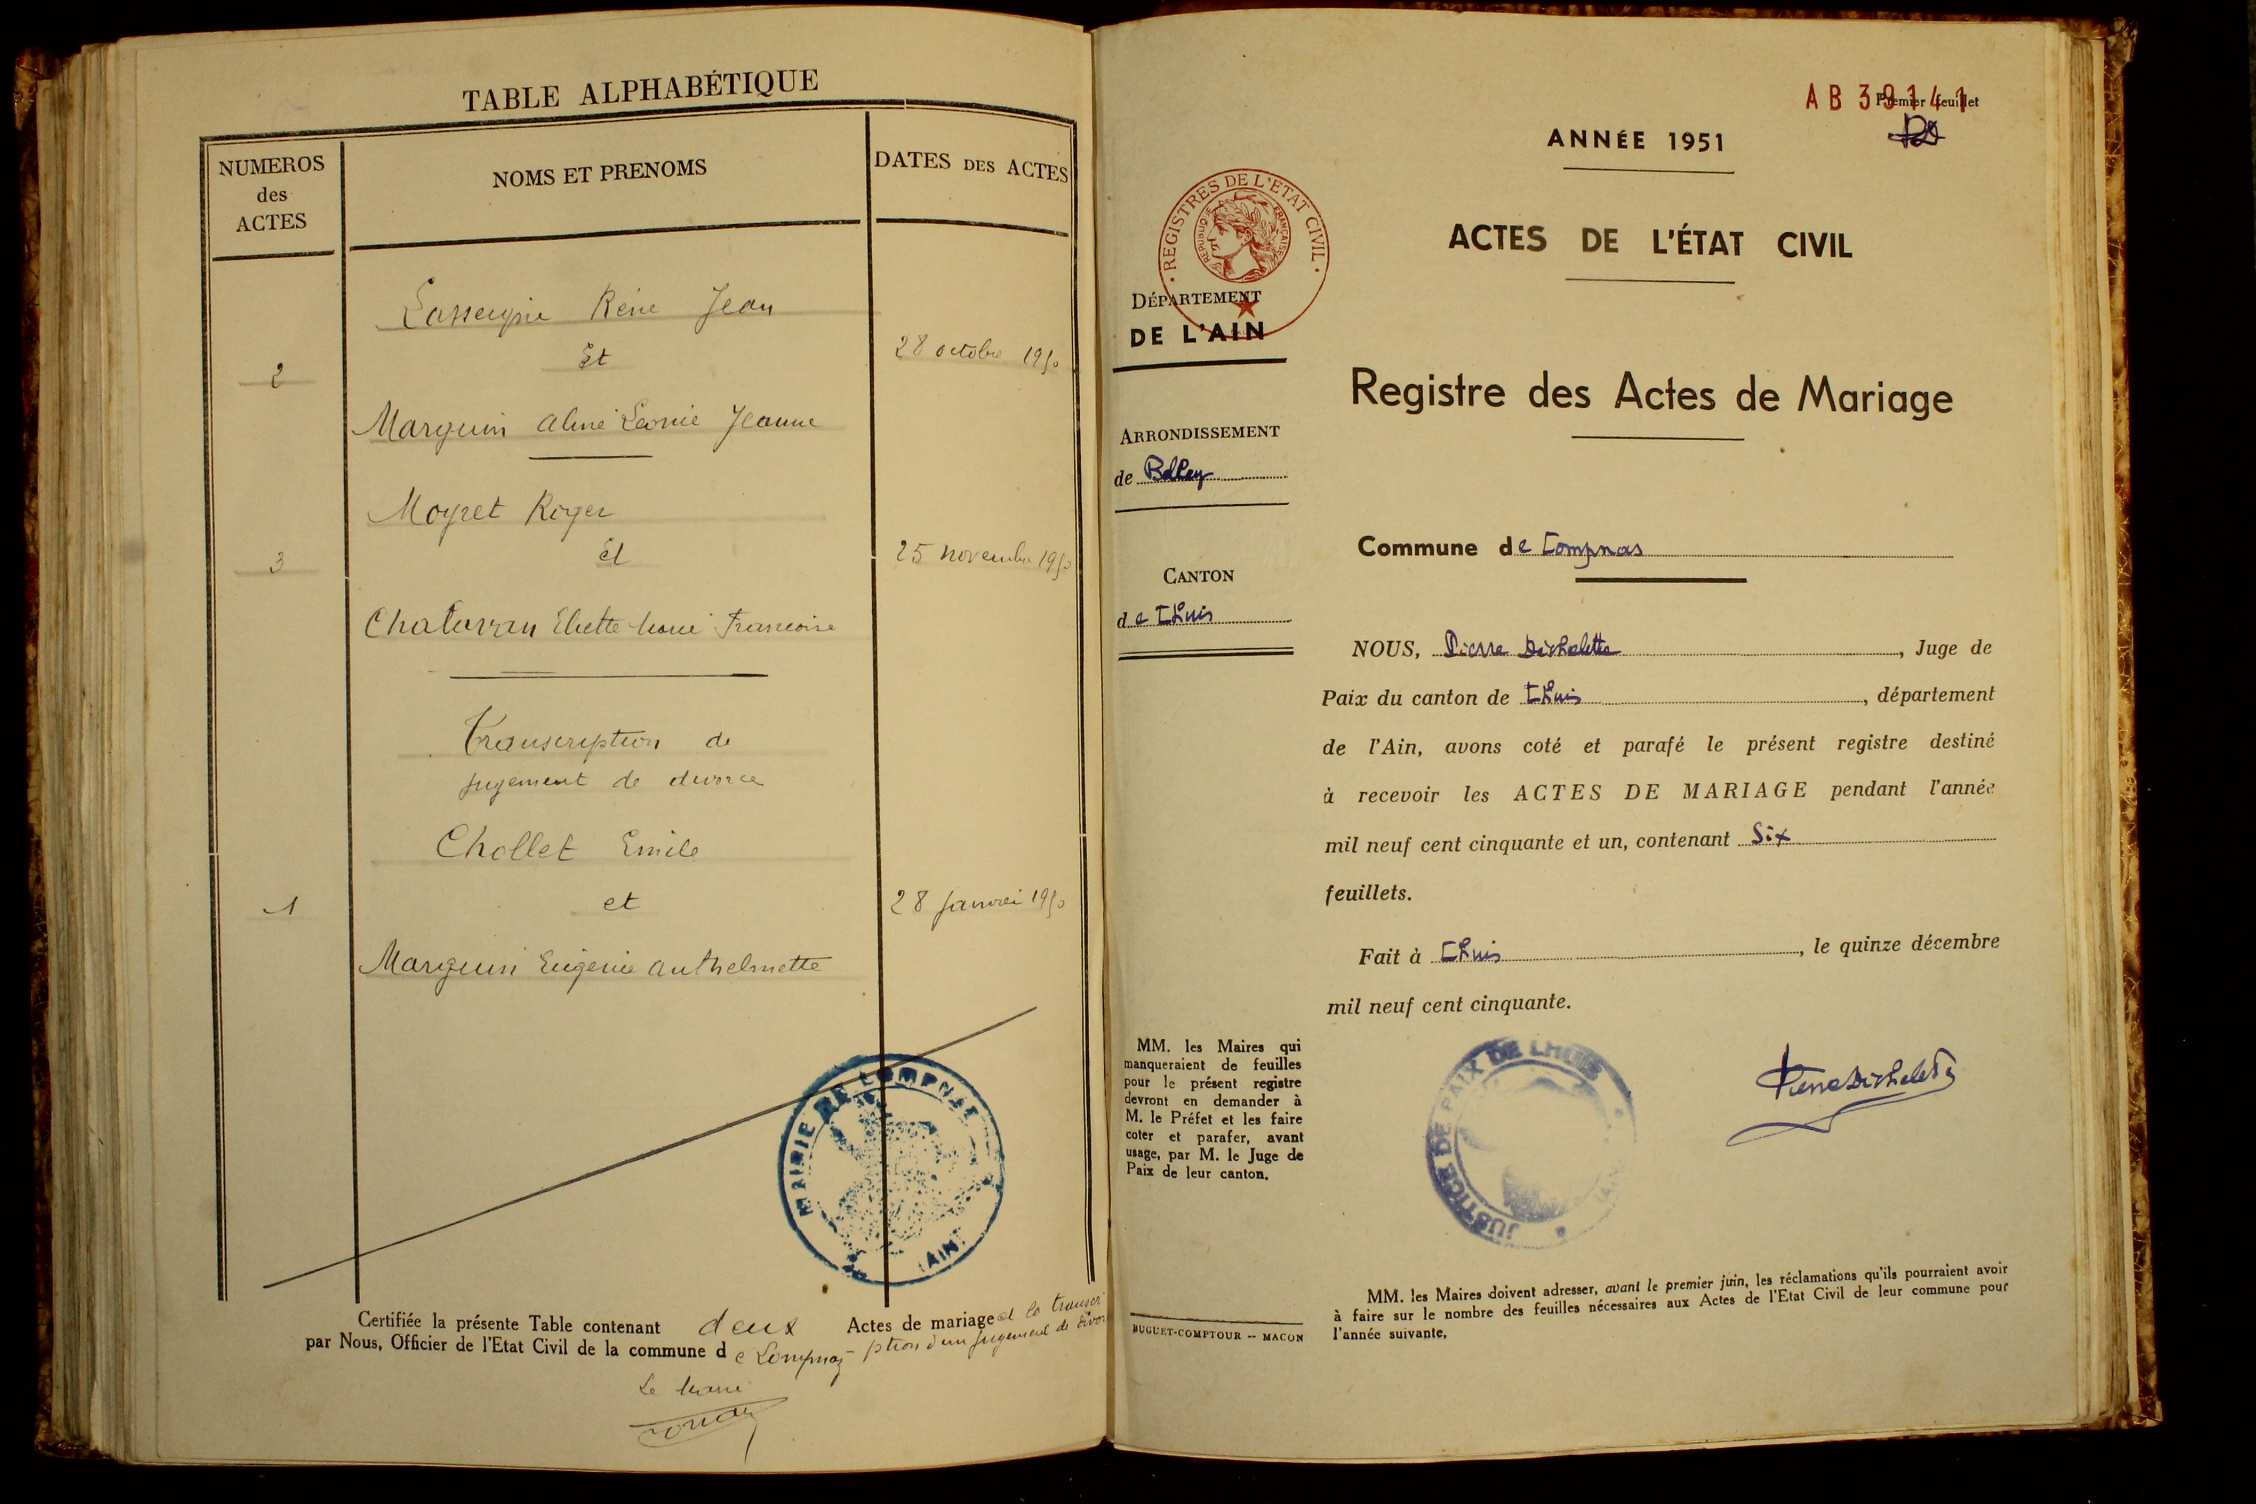 TABLE ALPHABÉTIQUE
NUMEROS
des
ACTES
NOMS ET PRENOMS
DATES DES ACTES
Jean
Et
2
28 octobre 1950
Marguin Aline Léonie Jeanne
Moyret Roger
et
3
25 novembre 1950
Eliette Marie Francoise
Transcription de
jugement de divorce
Chollet Emile
1
et
28 Janvier 1950
Marguin Eugénie Anthelmette
MAIRIE DE LOMPNAS
(AIN)
Certifiée la présente Table contenant deux Actes de mariage et la transcri
par Nous, Officier de l'Etat Civil de la commune de Lompnas - ption d'un jugement de divorce
Le Maire
AB 39141
Premier feuillet
ANNÉE 1951
ACTES DE L'ÉTAT CIVIL
REGISTRES DE L'ÉTAT CIVIL
RÉPUBLIQUE FRANÇAISE
DÉPARTEMENT
DE L'AIN
Registre des Actes de Mariage
ARRONDISSEMENT
de Belley
Commune de Lompnas
CANTON
de Lhuis
NOUS, Pierre Dichelette, Juge de
Paix du canton de Lhuis, département
de l'Ain, avons coté et parafé le présent registre destiné
à recevoir les ACTES DE MARIAGE pendant l'année
mil neuf cent cinquante et un, contenant Six
feuillets.
Fait à Lhuis, le quinze décembre
mil neuf cent cinquante.
MM. les Maires qui
manqueraient de feuilles
pour le présent registre
devront en demander à
M. le Préfet et les faire
coter et parafer, avant
usage, par M. le Juge de
Paix de leur canton.
JUSTICE DE PAIX DE LHUIS
MM. les Maires doivent adresser, avant le premier juin, les réclamations qu'ils pourraient avoir
à faire sur le nombre des feuilles nécessaires aux Actes de l'Etat Civil de leur commune pour
l'année suivante.
BUGUET-COMPTOUR -- MACON